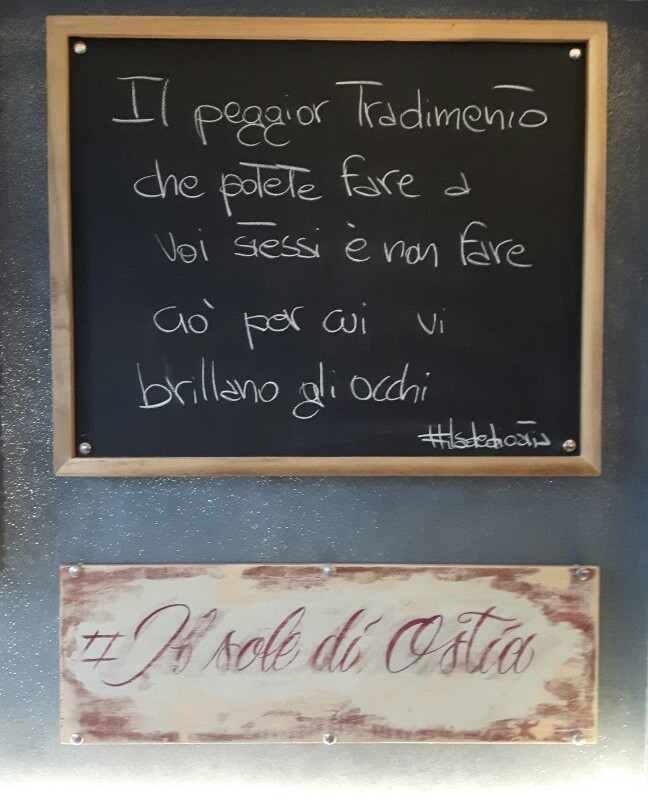 Il peggior Tradimento
che potete fare a
voi stessi è non fare
ciò per cui vi
brillano gli occhi
#ilsolediostia
#Il sole di Ostia